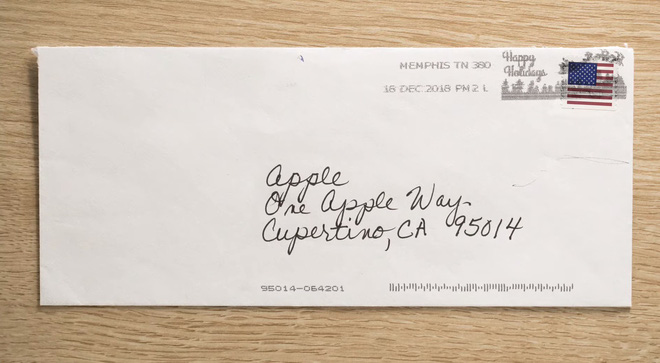 MEMPHIS TN 380
18 DEC 2018 PM 2 L
Happy
Holidays
Apple
One Apple Way
Cupertino, CA 95014
95014-064201